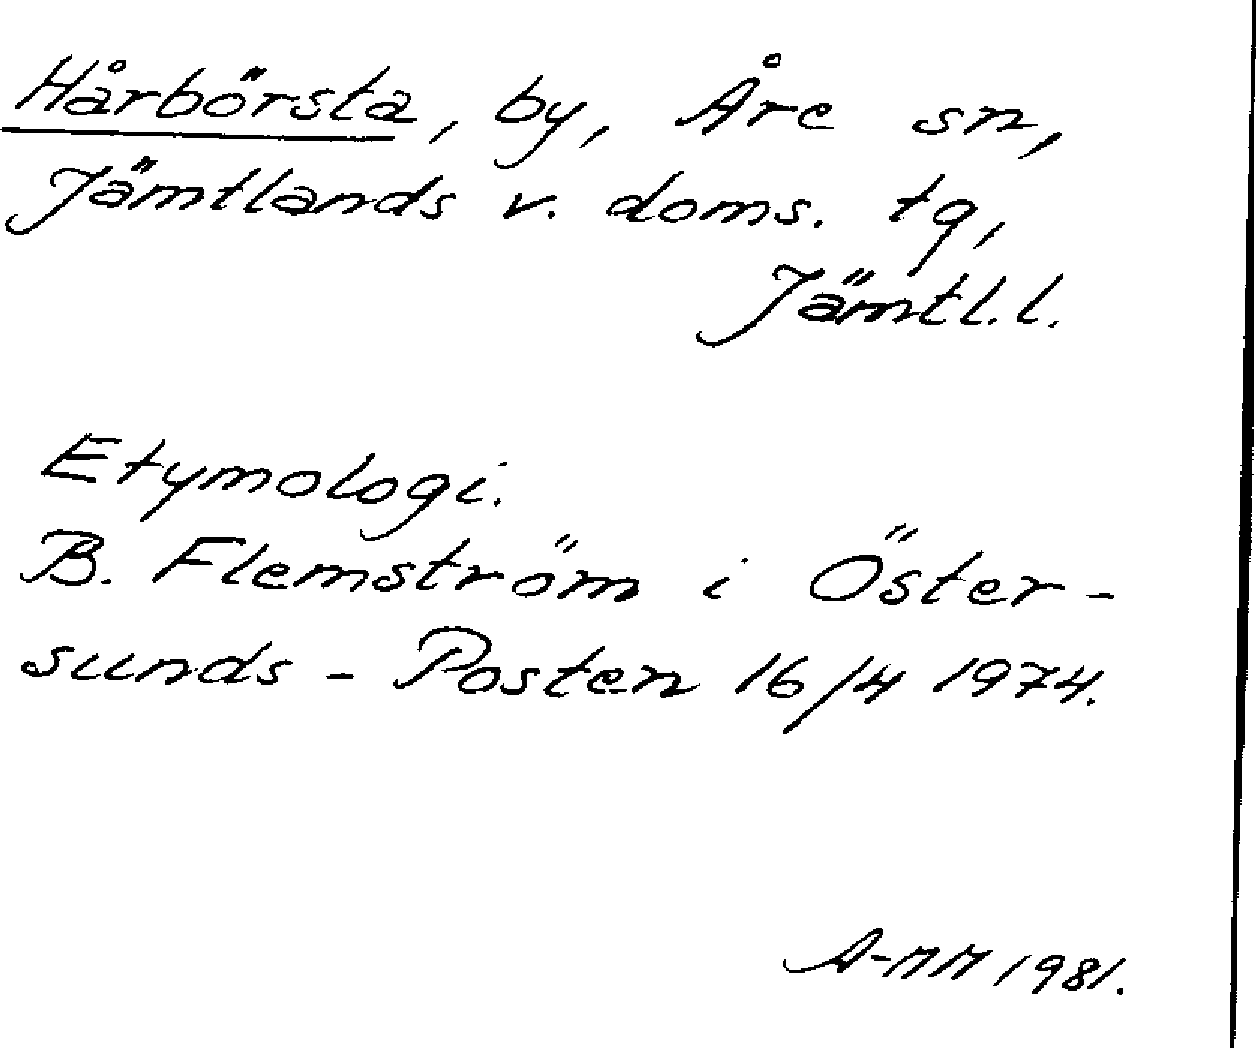 Hårbörsta, by, Åre sn,
Jämtlands v. doms. tg,
Jämtl. l.
Etymologi.
B. Flemström i Öster-
sunds-Posten 16/4 1974.
A-MM 1981.